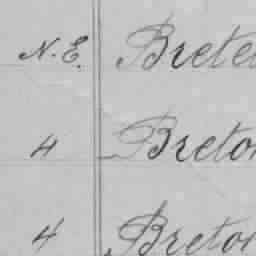 N.E. Brete
4 Breton
4 Breton